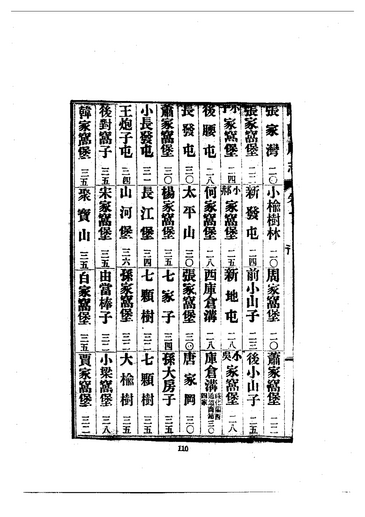 張家灣 二〇 小楡樹林 二〇 周家窩堡 二〇 蕭家窩堡 二二
張家窩堡 二二 新發屯 二四 前小山子 二三 後小山子 二五
家窩堡 二四 小郝家窩堡 二五 新地屯 二八 小吳家窩堡 二八
後腰屯 二八 何家窩堡 二八 西庫倉溝 二八 庫倉溝 三〇
長發屯 三〇 太平山 三〇 張家窩堡 三〇 唐家岡 三〇
蕭家窩堡 三〇 楊家窩堡 三〇 七家子 三四 孫大房子 三五
小長發屯 三二 長江堡 三四 七顆樹 三二 七顆樹 三五
王炮子屯 三四 山河堡 三六 孫家窩堡 三二 大楡樹 三五
後對窩子 三五 宋家窩堡 三五 由當棒子 三二 小梁窩堡 三八
韓家窩堡 三五 聚寶山 三五 白家窩堡 三五 賈家窩堡 三二
110